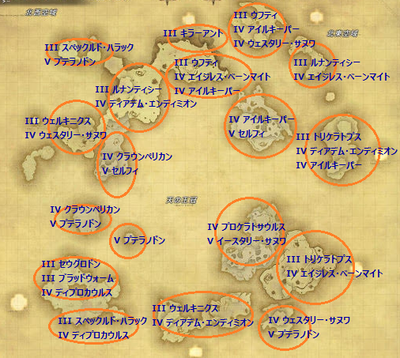 北西空域
III キラーアント
III ウフティ
IV アイルキーパー
IV ウェスタリー・サヌワ
北東空域
III スペックルド・ハラック
V プテラノドン
III ウフティ
IV エイジレス・ベーンマイト
IV アイルキーパー
III ルナンティシー
IV エイジレス・ベーンマイト
III ルナンティシー
IV ディアデム・エンディミオン
III ウェルキニクス
IV ウェスタリー・サヌワ
IV アイルキーパー
V セルフィ
III トリケラトプス
IV ディアデム・エンディミオン
IV アイルキーパー
IV クラウンペリカン
V セルフィ
IV クラウンペリカン
V プテラノドン
V プテラノドン
IV プロケラトサウルス
V イースタリー・サヌワ
III トリケラトプス
IV エイジレス・ベーンマイト
III セウグロドン
III ブラッドウォーム
IV ディプロカウルス
III スペックルド・ハラック
IV ディプロカウルス
III ウェルキニクス
IV ディアデム・エンディミオン
IV ウェスタリー・サヌワ
V プテラノドン